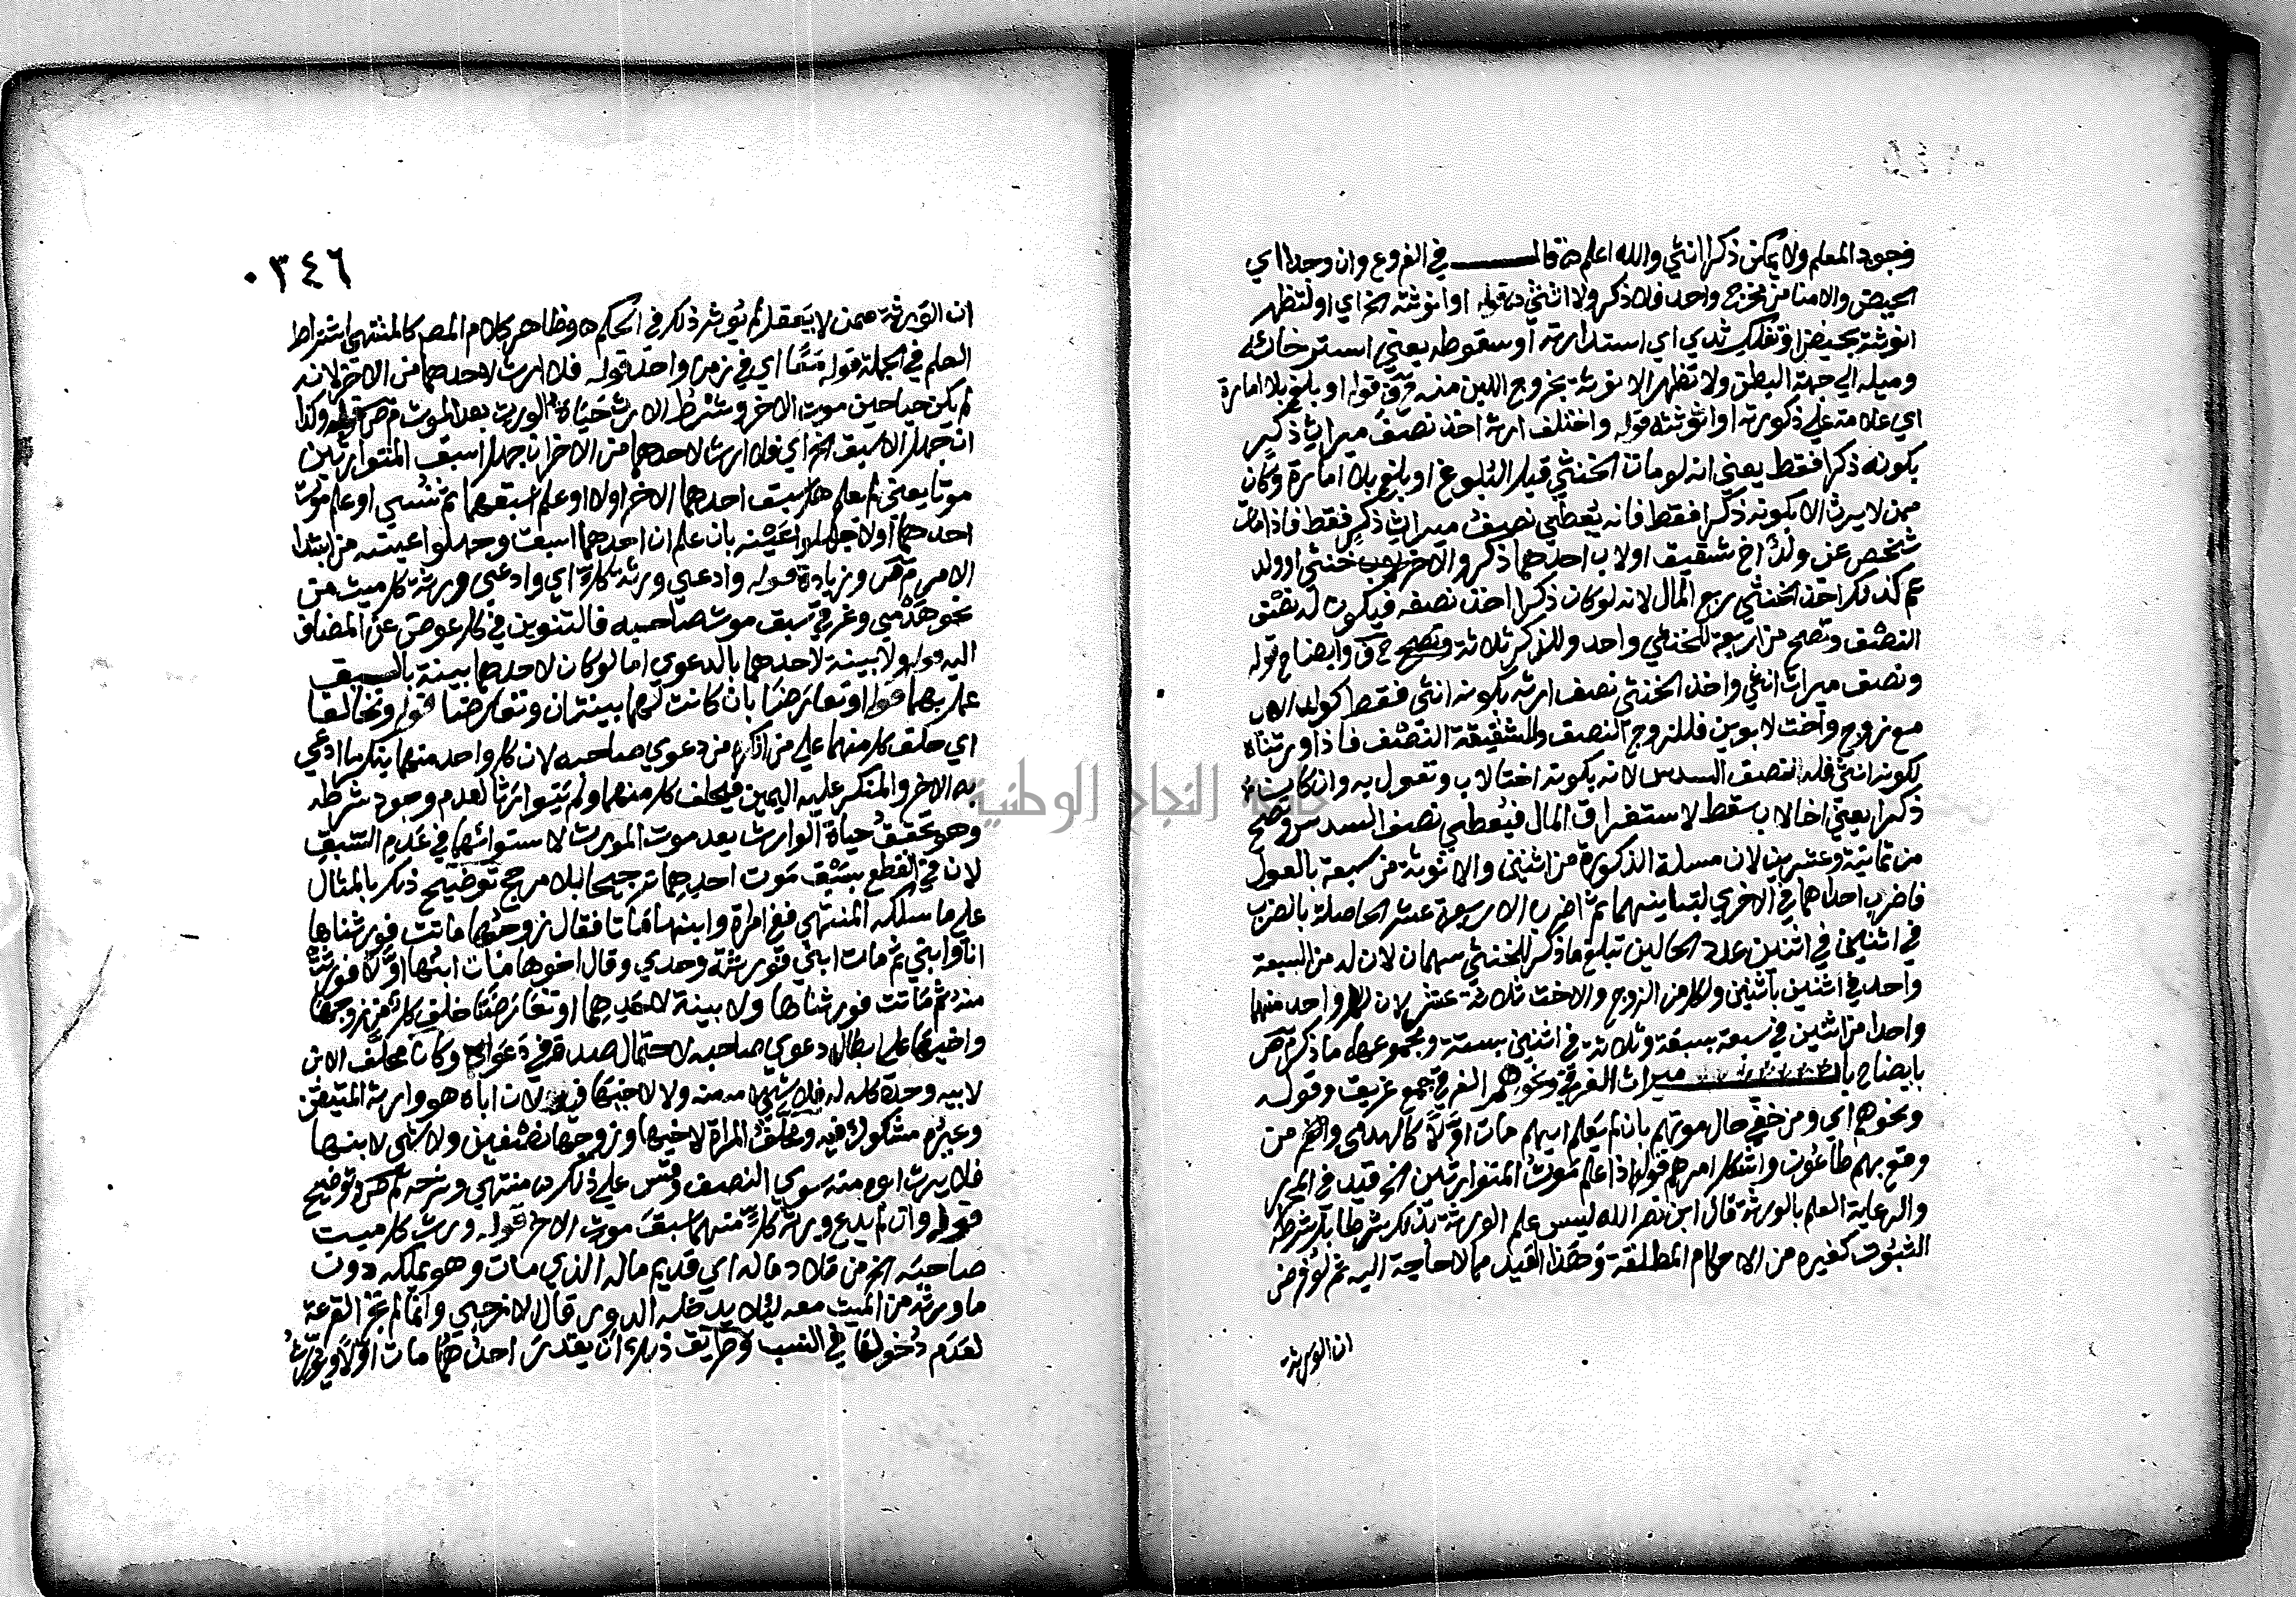 فجود المعلم ولا يمكن ذكرا انثي والله اعلم قال في الفروع وان وجدا اي
الحيض والامنا من مخرج واحد فلا ذكر ولا انثي قوله او انوثته الخ اي او لتظهر
انوثته بحيض او تفلك ثدي اي استدارته او سقوطه يعني استرخائه
وميله الي جهة البطن ولا تظهر الانوثة بخروج اللبن منه قوله او بلغ بلا امارة
اي علامة علي ذكورته او انوثته قوله واختلف ارثه اخذ نصف ميراث ذكر
بكونه ذكرا فقط يعني انه لو مات الخنثي قبل البلوغ او بلغ بلا امارة وكان
ممن لا يرث الا بكونه ذكرا فقط فانه يعطي نصف ميراث ذكر فقط فاذا مات
شخص عن ولد اخ شقيق او لاب احدهما ذكر والاخر خنثي او ولد
عم كذلك اخذ الخنثي ربع المال لانه لو كان ذكرا اخذ نصفه فيكون له نصف
النصف وتصح من اربعة للخنثي واحد وللذكر ثلاثة وايضاح قوله
ونصف ميراث انثي واخذ الخنثي نصف ارثه بكونه انثي فقط كولد الاب
مع زوج واخت لابوين فللزوج النصف وللشقيقة النصف فاذا ورثناه
بكونه انثي فله نصف السدس لانه بكونه اختا لاب وتعول به وان كان
ذكرا يعني اخا لاب سقط لاستغراق المال فيعطي نصف السدس وتصح
من ثمانية وعشرين لان مسلة الذكورة من اثنين والانوثة من سبعة بالعول
فاضرب احداهما في الاخري لتباينهما ثم اضرب الاربعة عشر الحاصلة بالضرب
في اثنين في اثنين عدد الحالين تبلغ ما ذكر للخنثي سهمان لان له من السبعة
واحد في اثنين باثنين ولكل من الزوج والاخت ثلاثة عشر لان لكل واحد منهما
واحدا من اثنين في سبعة بسبعة وثلاثة في اثنين بستة ومجموعهما ما ذكر
بايضاح باب ميراث الغرقي ونحوهم الغرقي جمع غريق وقوله
ونحوهم اي ومن خفي حال موتهم بان لم يعلم ايهم مات اولا كالهدمي من
وقع بهم طاعون واشكل امرهم قوله اذا علم موت المتوارثين الخ قيد في
والرعاية العلم بالورثة قال ابن نصر الله ليس علم الورثة بذلك شرطا بل شرطه
الثبوت كغيره من الاحكام المطلقة وهذا القيد مما لا حاجة اليه نعم لو فرض
ان الورثة
٠٣٤٦
ان الورثة ممن لا يعقل لم يؤثر ذلك في الحكم وظاهر كلام المص كالمنتهي اشتراط
العلم في الجملة قوله معا اي في زمن واحد قوله فلا ارث لاحدهما من الاخر لانه
لم يكن حيا حين موت الاخر وشرط الارث حياة الوارث بعد الموت قوله وكذا
ان جهل الاسبق الخ اي فلا ارث لاحدهما من الاخر ان جهل اسبق المتوارثين
موتا يعني لم يعلم هل سبق احدهما الاخر اولا او علم اسبقهما ثم نسي او علم موت
احدهما اولا وجهلوا عينه بان علم ان احدهما اسبق وجهلوا عينه من ابتدا
الامر وزيادة قوله وادعي ورثة كل اي وادعي ورثة كل ميت من
نحو هدمي وغرقي سبق موت صاحبه فالتنوين في كل عوض عن المضاف
اليه قوله ولا بينة لاحدهما بالدعوي اما لو كان لاحدهما بينة بالسبق
عمل بها قوله او تعارضتا بان كانت لهما بينتان وتعارضتا قوله وتحالفا
اي حلف كل منهما علي من دعوي صاحبه لان كل واحد منهما ينكر ما ادعي
به الاخر والمنكر عليه اليمين فيحلف كل منهما ولم يتوارثا لعدم وجود شرطه
وهو تحقق حياة الوارث بعد موت المورث لاستوائهما في عدم السبق
لان في القطع بسبق موت احدهما ترجيحا بلا مرجح توضيح ذلك بالمثال
علي ما سلكه المنتهي ففي امراة وابنها ماتا فقال زوجها ماتت فورثناها
انا وابني ثم مات ابني فورثته وحدي وقال اخوها مات ابنها اولا فورثت
منه ثم ماتت فورثناها ولا بينة لاحدهما او تعارضتا حلف كل من زوجها
واخيها علي ابطال دعوي صاحبه لاحتمال صدقه في دعواه وكان مخلف الابن
لابيه وحده كله له فلا شي لامه منه ولا لاخيها فيه لان اباه هو وارثه المتيقن
وغيره مشكوك فيه ومخلف المراة لاخيها وزوجها نصفين ولا شي لابنها
فلا يرث ابوه منه سوي النصف وقس علي ذلك منتهي وشرحه توضيح
قوله وان لم يدع ورثة كل منهما سبق موت الاخر قوله ورث كل ميت
صاحبه الخ من تلاد ماله اي قديم ماله الذي مات وهو يملكه دون
ما ورثه من الميت معه ليلا يدخله الدور قال الازجي وانما لم تجز القرعة
لعدم دخولها في النسب وطريق ذلك ان يقدر احدهما مات اولا ويورث